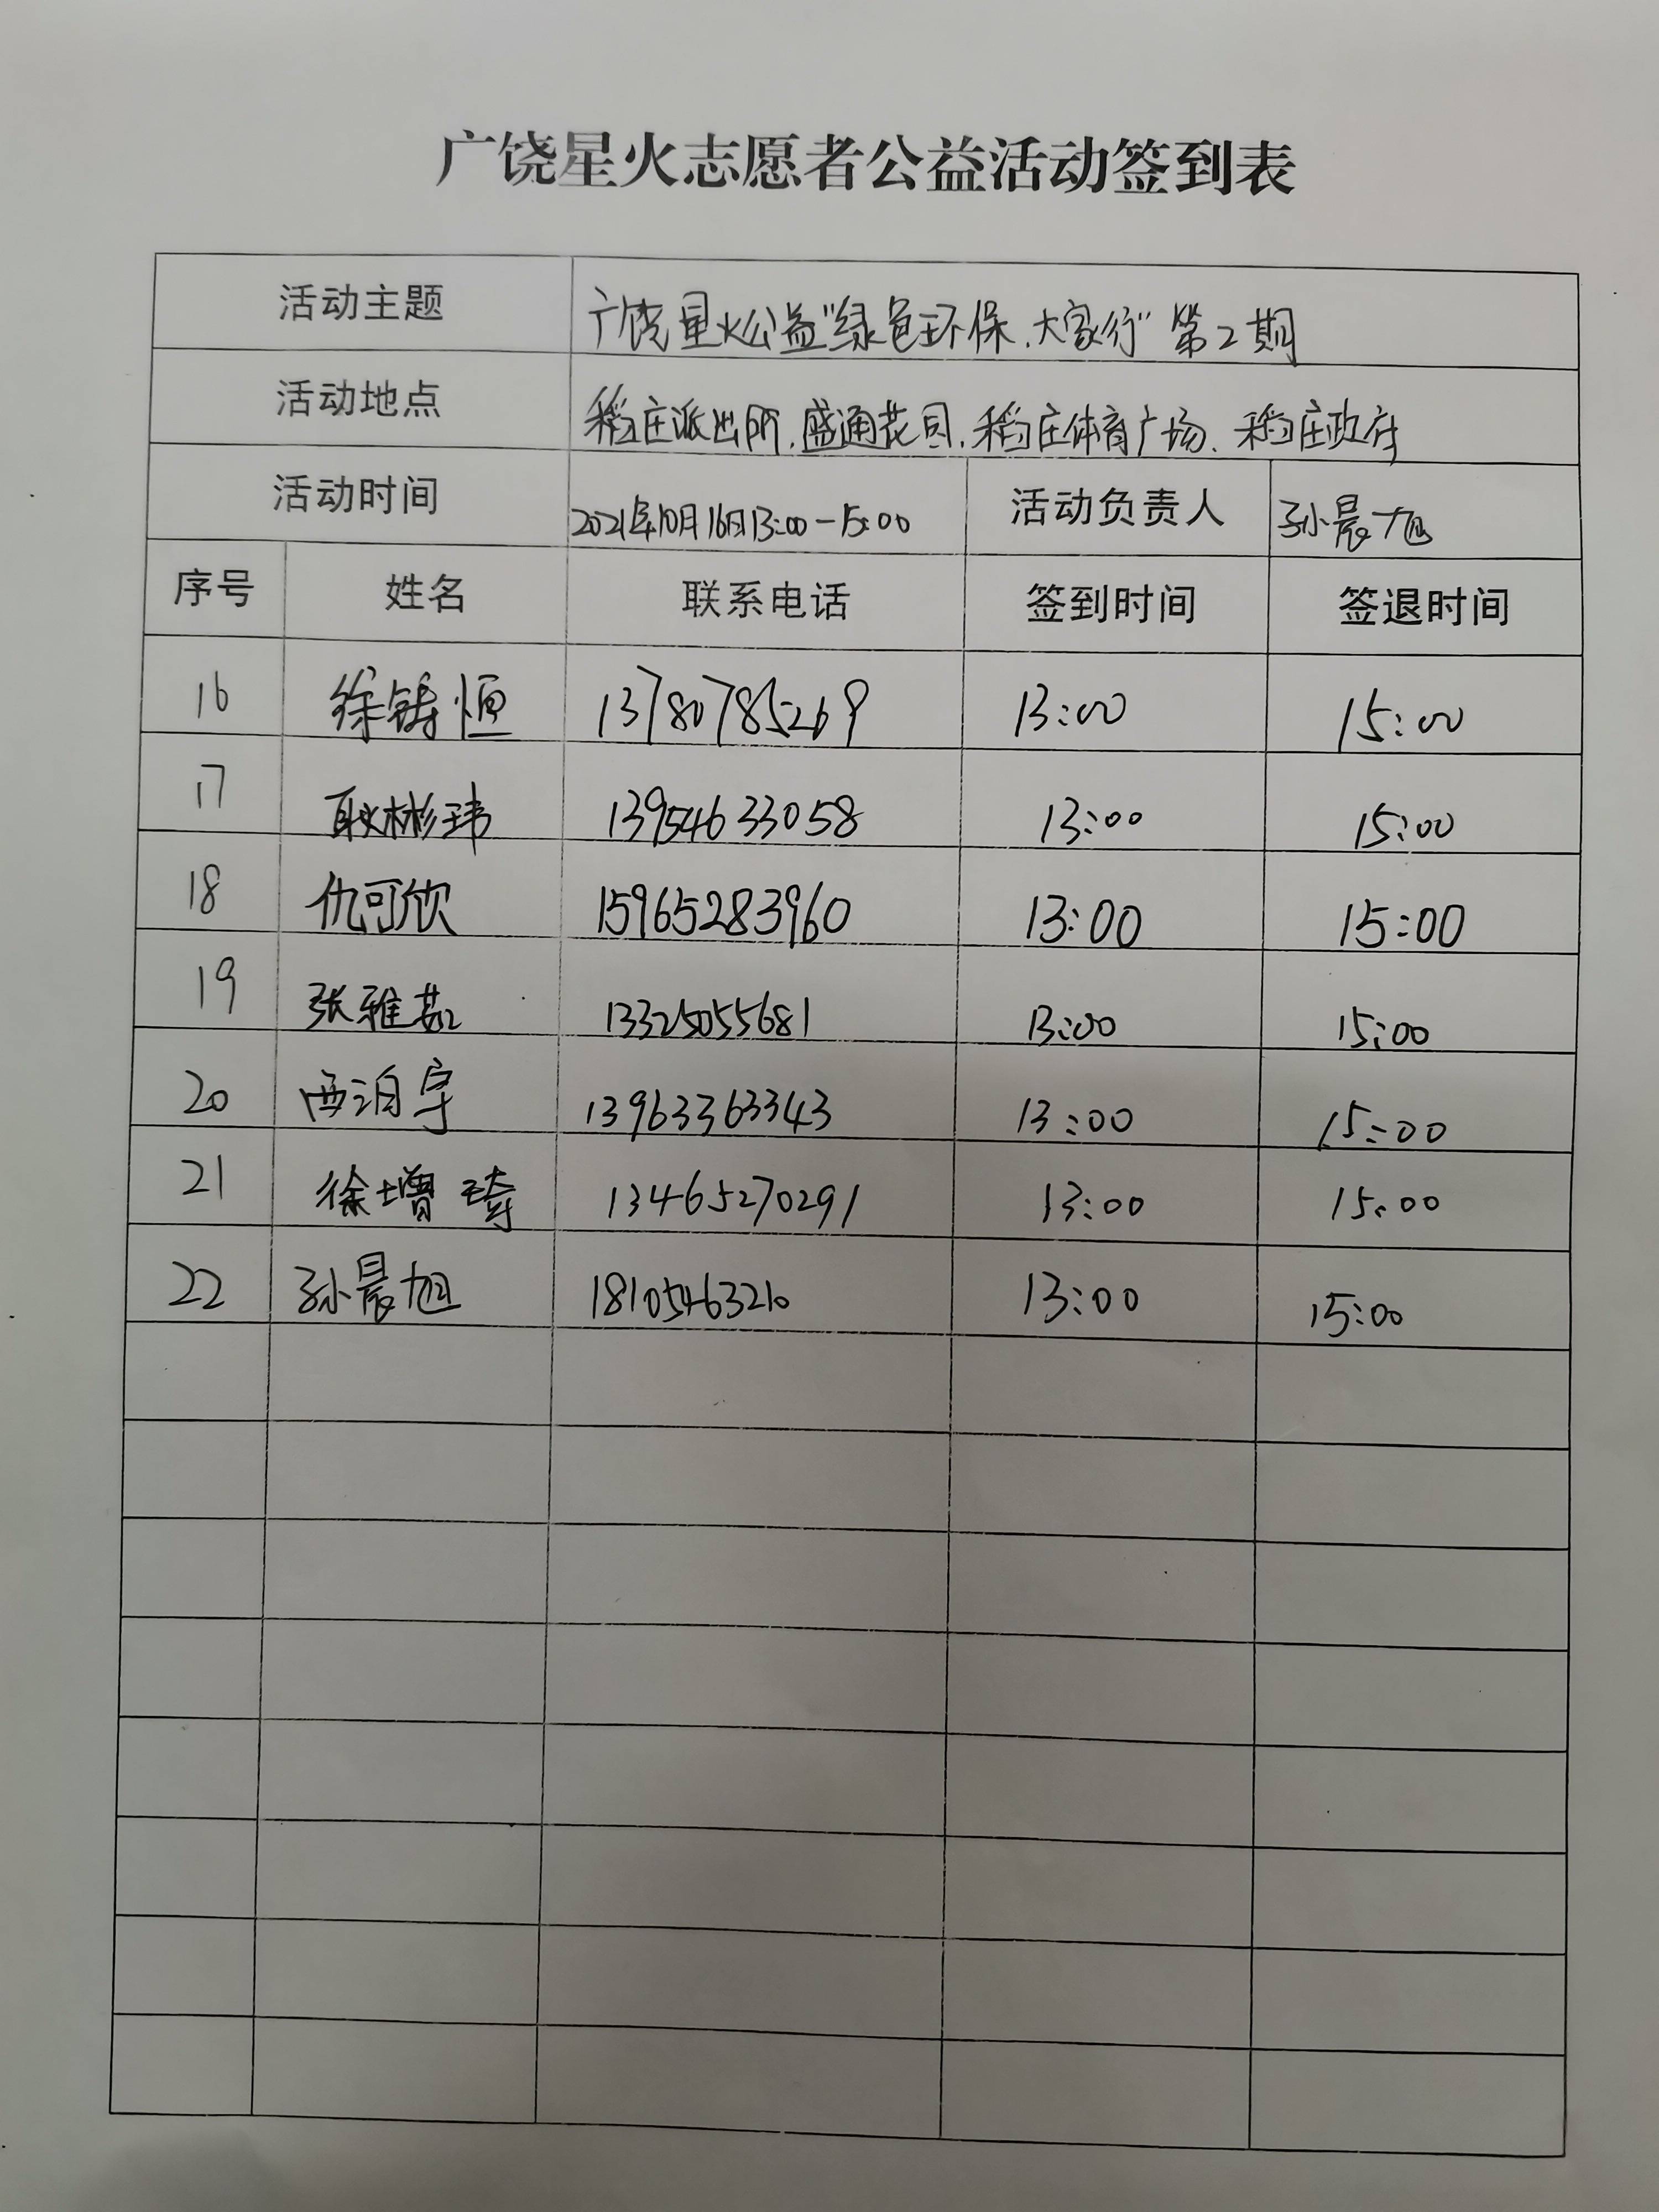 广饶星火志愿者公益活动签到表
活动主题 广饶星火公益"绿色环保,大家行"第2期
活动地点 稻庄派出所,盛通花园,稻庄体育广场、稻庄政府
活动时间 2021年10月16日13:00-15:00 活动负责人 孙晨旭
序号 姓名 联系电话 签到时间 签退时间
16 徐铸恒 13780785269 13:00 15:00
17 耿彬玮 13954633058 13:00 15:00
18 仇可欣 15965283960 13:00 15:00
19 张雅茹 13325055681 13:00 15:00
20 西泊宇 13963363343 13:00 15:00
21 徐增琦 13465270291 13:00 15:00
22 孙晨旭 18105463210 13:00 15:00